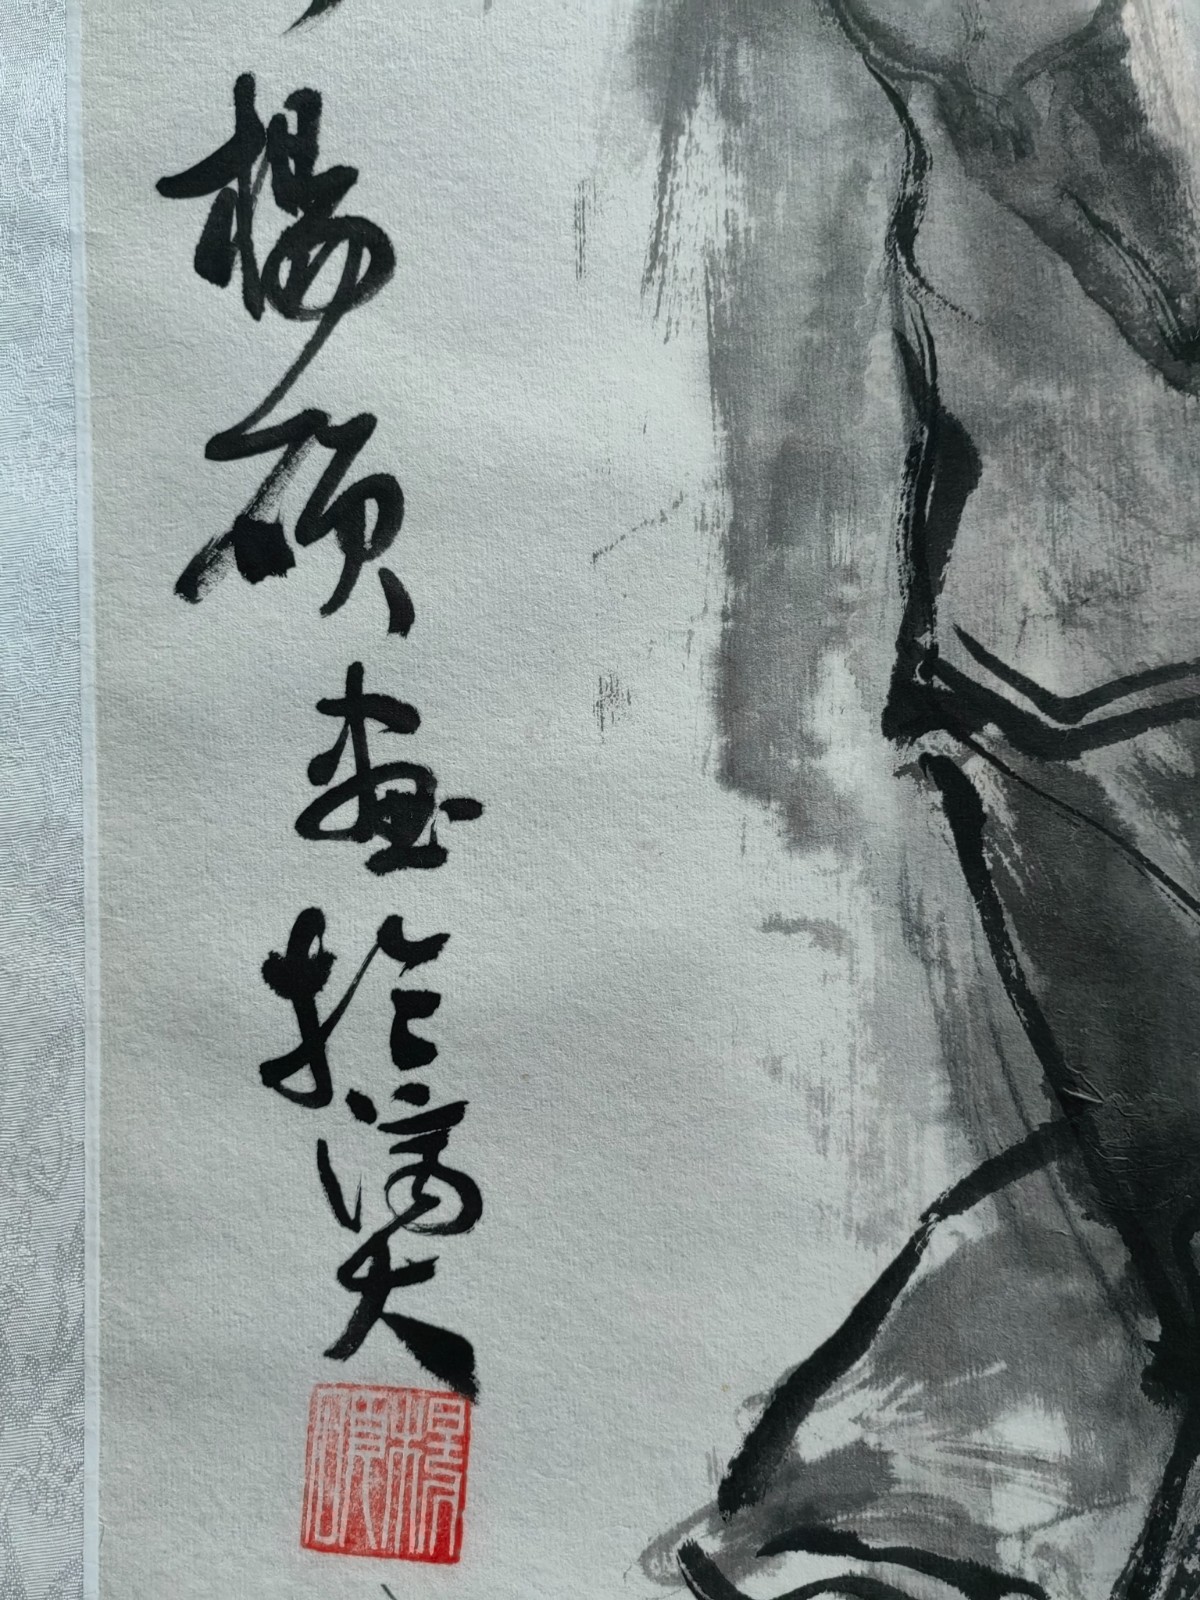 楊碩畫於
楊碩